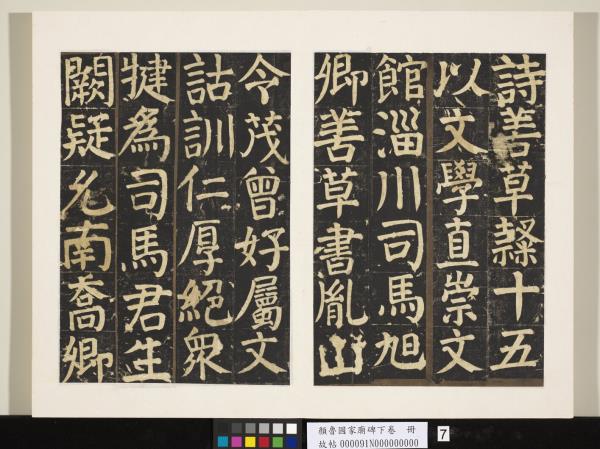 詩善草隸十五
以文學直崇文
館淄川司馬旭
卿善草書胤山
令茂曾好屬文
詁訓仁厚絕衆
犍為司馬君生
闕疑允南喬卿
顏魯國家廟碑下卷 冊
故帖 000091N000000000
7